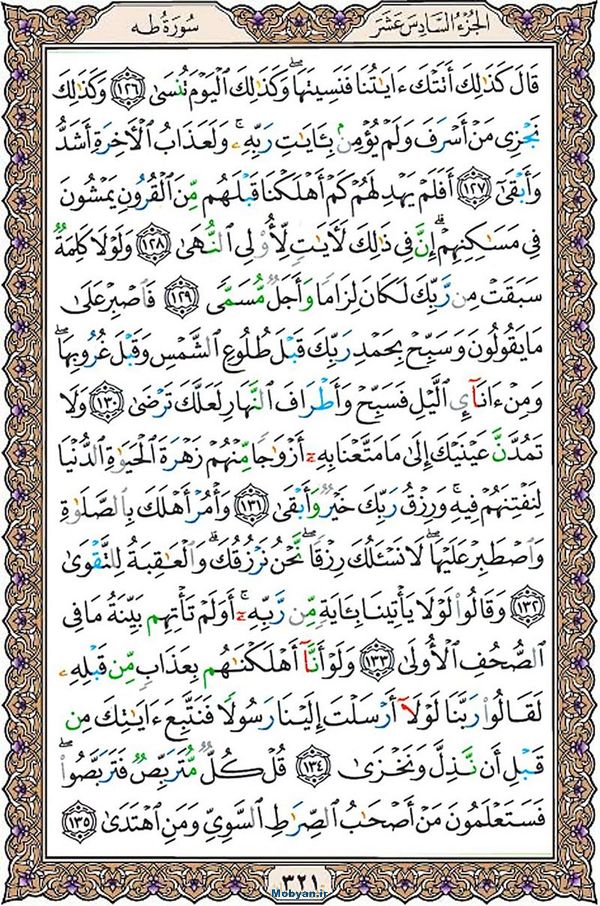 الجُزْءُ السَّادِسَ عَشَرَ
سُورَةُ طه
قَالَ كَذَٰلِكَ أَتَتْكَ ءَايَٰتُنَا فَنَسِيتَهَاۖ وَكَذَٰلِكَ ٱلْيَوْمَ تُنسَىٰ ١٢٦ وَكَذَٰلِكَ
نَجْزِى مَنْ أَسْرَفَ وَلَمْ يُؤْمِنۢ بِـَٔايَٰتِ رَبِّهِۦۚ وَلَعَذَابُ ٱلْأَخِرَةِ أَشَدُّ
وَأَبْقَىٰٓ ١٢٧ أَفَلَمْ يَهْدِ لَهُمْ كَمْ أَهْلَكْنَا قَبْلَهُم مِّنَ ٱلْقُرُونِ يَمْشُونَ
فِى مَسَٰكِنِهِمْۗ إِنَّ فِى ذَٰلِكَ لَأَيَٰتٍ لِّأُو۟لِى ٱلنُّهَىٰ ١٢٨ وَلَوْلَا كَلِمَةٌ
سَبَقَتْ مِن رَّبِّكَ لَكَانَ لِزَامًا وَأَجَلٌ مُّسَمًّى ١٢٩ فَٱصْبِرْ عَلَىٰ
مَا يَقُولُونَ وَسَبِّحْ بِحَمْدِ رَبِّكَ قَبْلَ طُلُوعِ ٱلشَّمْسِ وَقَبْلَ غُرُوبِهَاۖ
وَمِنْ ءَانَآئِ ٱلَّيْلِ فَسَبِّحْ وَأَطْرَافَ ٱلنَّهَارِ لَعَلَّكَ تَرْضَىٰ ١٣٠ وَلَا
تَمُدَّنَّ عَيْنَيْكَ إِلَىٰ مَا مَتَّعْنَا بِهِۦٓ أَزْوَٰجًا مِّنْهُمْ زَهْرَةَ ٱلْحَيَوٰةِ ٱلدُّنْيَا
لِنَفْتِنَهُمْ فِيهِۚ وَرِزْقُ رَبِّكَ خَيْرٌ وَأَبْقَىٰ ١٣١ وَأْمُرْ أَهْلَكَ بِٱلصَّلَوٰةِ
وَٱصْطَبِرْ عَلَيْهَاۖ لَا نَسْـَٔلُكَ رِزْقًاۖ نَّحْنُ نَرْزُقُكَۗ وَٱلْعَٰقِبَةُ لِلتَّقْوَىٰ
١٣٢ وَقَالُوا۟ لَوْلَا يَأْتِينَا بِـَٔايَةٍ مِّن رَّبِّهِۦٓۚ أَوَلَمْ تَأْتِهِم بَيِّنَةُ مَا فِى
ٱلصُّحُفِ ٱلْأُولَىٰ ١٣٣ وَلَوْ أَنَّآ أَهْلَكْنَٰهُم بِعَذَابٍ مِّن قَبْلِهِۦ
لَقَالُوا۟ رَبَّنَا لَوْلَآ أَرْسَلْتَ إِلَيْنَا رَسُولًا فَنَتَّبِعَ ءَايَٰتِكَ مِن
قَبْلِ أَن نَّذِلَّ وَنَخْزَىٰ ١٣٤ قُلْ كُلٌّ مُّتَرَبِّصٌ فَتَرَبَّصُوا۟ۖ
فَسَتَعْلَمُونَ مَنْ أَصْحَٰبُ ٱلصِّرَٰطِ ٱلسَّوِىِّ وَمَنِ ٱهْتَدَىٰ ١٣٥
٣٢١
Mobyan.ir